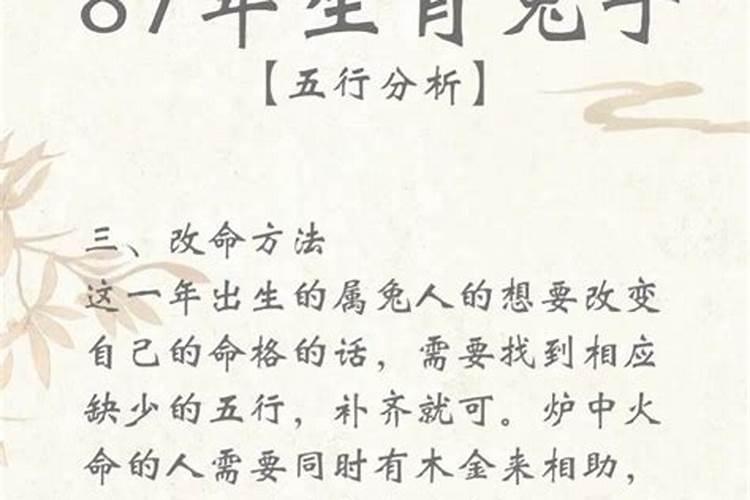 87年生肖兔子
【五行分析】
三、改命方法
这一年出生的属兔人的想要改变
自己的命格的话，需要找到相应
缺少的五行，补齐就可。炉中火
命的人需要同时有木金来相助，